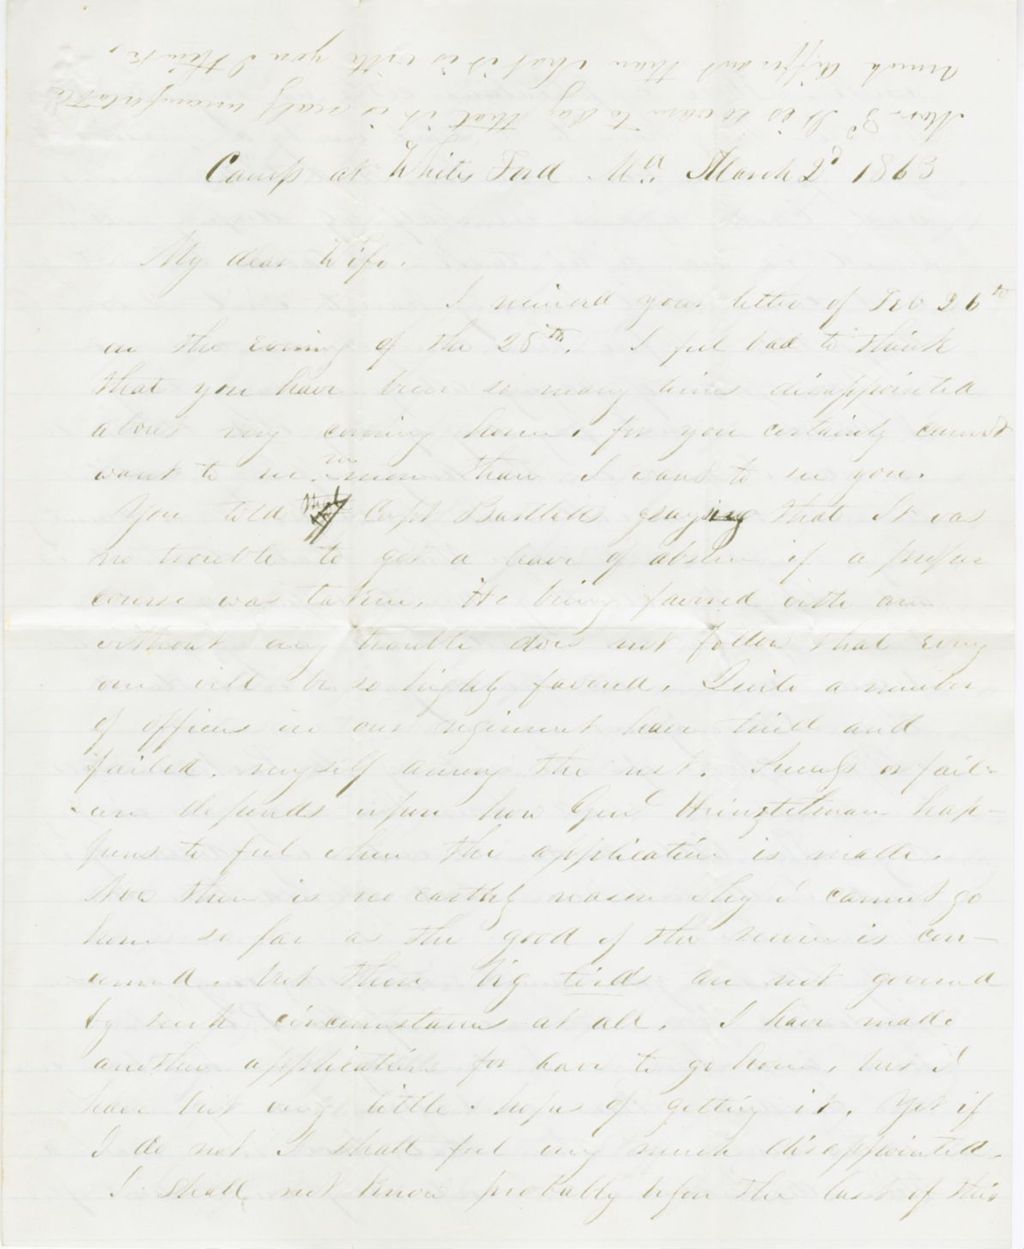 Mar. 3d It is so warm to day that it is really uncomfortable
Much different than what it is with you I think.
Camp at Whites Ford Md. March 2d 1863
My dear Wife.
I received your letter of Feb 26th
on the evening of the 28th. I feel bad to think
that you have been so many times disappointed
about my coming home, for you certainly cannot
want to see me more than I want to see you.
You told that Capt Bartlett saying that It was
no trouble to get a leave of absence if a proper
course was taken. His being favored with one
without any trouble does not follow that every
one will be so highly favored. Quite a number
of officers in our regiment have tried and
failed. myself among the rest. Success or fail-
ure depends upon how Genl Heinztelman hap-
pens to feel when the application is made.
Now there is no earthly reason why I cannot go
home so far as the good of the service is con-
cerned. but these big are not governed
by such circumstances at all. I have made
another application for leave to go home, but I
have but very little hopes of getting it. Yet if
I do not I shall feel very much disappointed.
I shall not know probably before the last of this